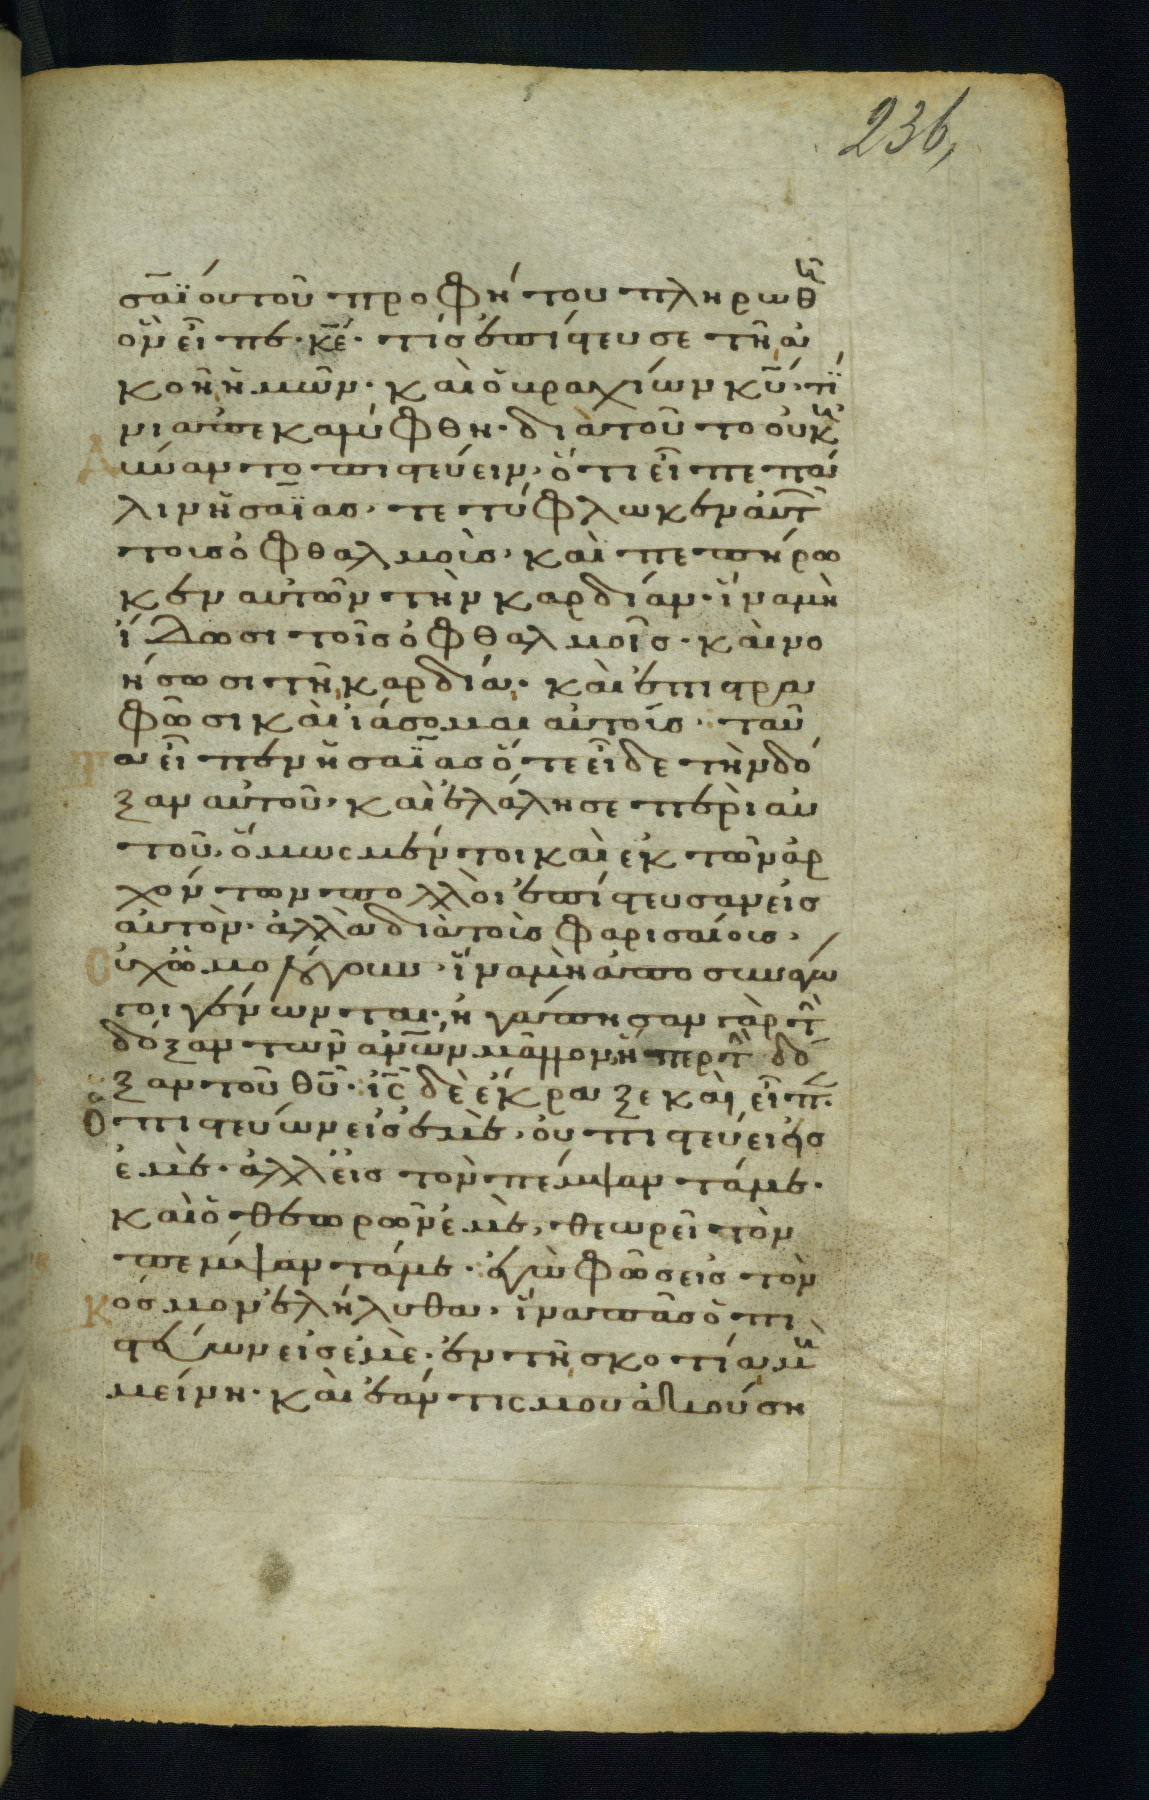 236,
σαΐου τοῦ προφήτου πληρωθῆ
ὃν εἶπε· κε̄· τίς ἐπίστευσε τῆ ἀ
κοῆ ἡμῶν· καὶ ὁ βραχίων κῡ τί
νι ἀπεκαλύφθη· διὰ τοῦτο οὐκ ἠ
δύναντο πιστεύειν, ὅτι εἶπε πά
λιν ἡσαΐας· τετύφλωκεν αὐτ
τοὺς ὀφθαλμοὺς· καὶ πεπώρω
κεν αὐτῶν τὴν καρδίαν· ἵνα μὴ
ἴδωσι τοῖς ὀφθαλμοῖς· καὶ νο
ήσωσι τῆ καρδία· καὶ ἐπιστρα
φῶσι καὶ ἰάσομαι αὐτούς· ταῦ
τα εἶπεν ἡσαΐας ὅτε εἶδε τὴν δό
ξαν αὐτοῦ· καὶ ἐλάλησε περὶ αὐ
τοῦ, ὅμως μέντοι καὶ ἐκ τῶν ἀρ
χόντων πολλοὶ ἐπίστευσαν εἰς
αὐτὸν· ἀλλὰ διὰ τοὺς φαρισαίους,
οὐχ ὡμολόγουν· ἵνα μὴ ἀποσυνάγω
γοι γένωνται· ἠγάπησαν γὰρ τὴ
δόξαν τῶν ἀν̄ων μᾶλλον ἤπερ τὴ δό
ξαν τοῦ θῡ· ις̄ δὲ ἔκραξε καὶ εἶπ·
ὁ πιστεύων εἰς ἐμὲ, οὐ πιστεύει εἰς
ἐμὲ· ἀλλ εἰς τὸν πέμψαντά με·
καὶ ὁ θεωρῶν ἐμὲ, θεωρεῖ τὸν
πέμψαντά με· ἐγὼ φῶς εἰς τὸν
κόσμον ἐλήλυθα· ἵνα πᾶς ὁ πι
στεύων εἰς ἐμὲ· ἐν τῆ σκοτία μὴ
μείνη· καὶ ἐάν τις μου ἀκούση